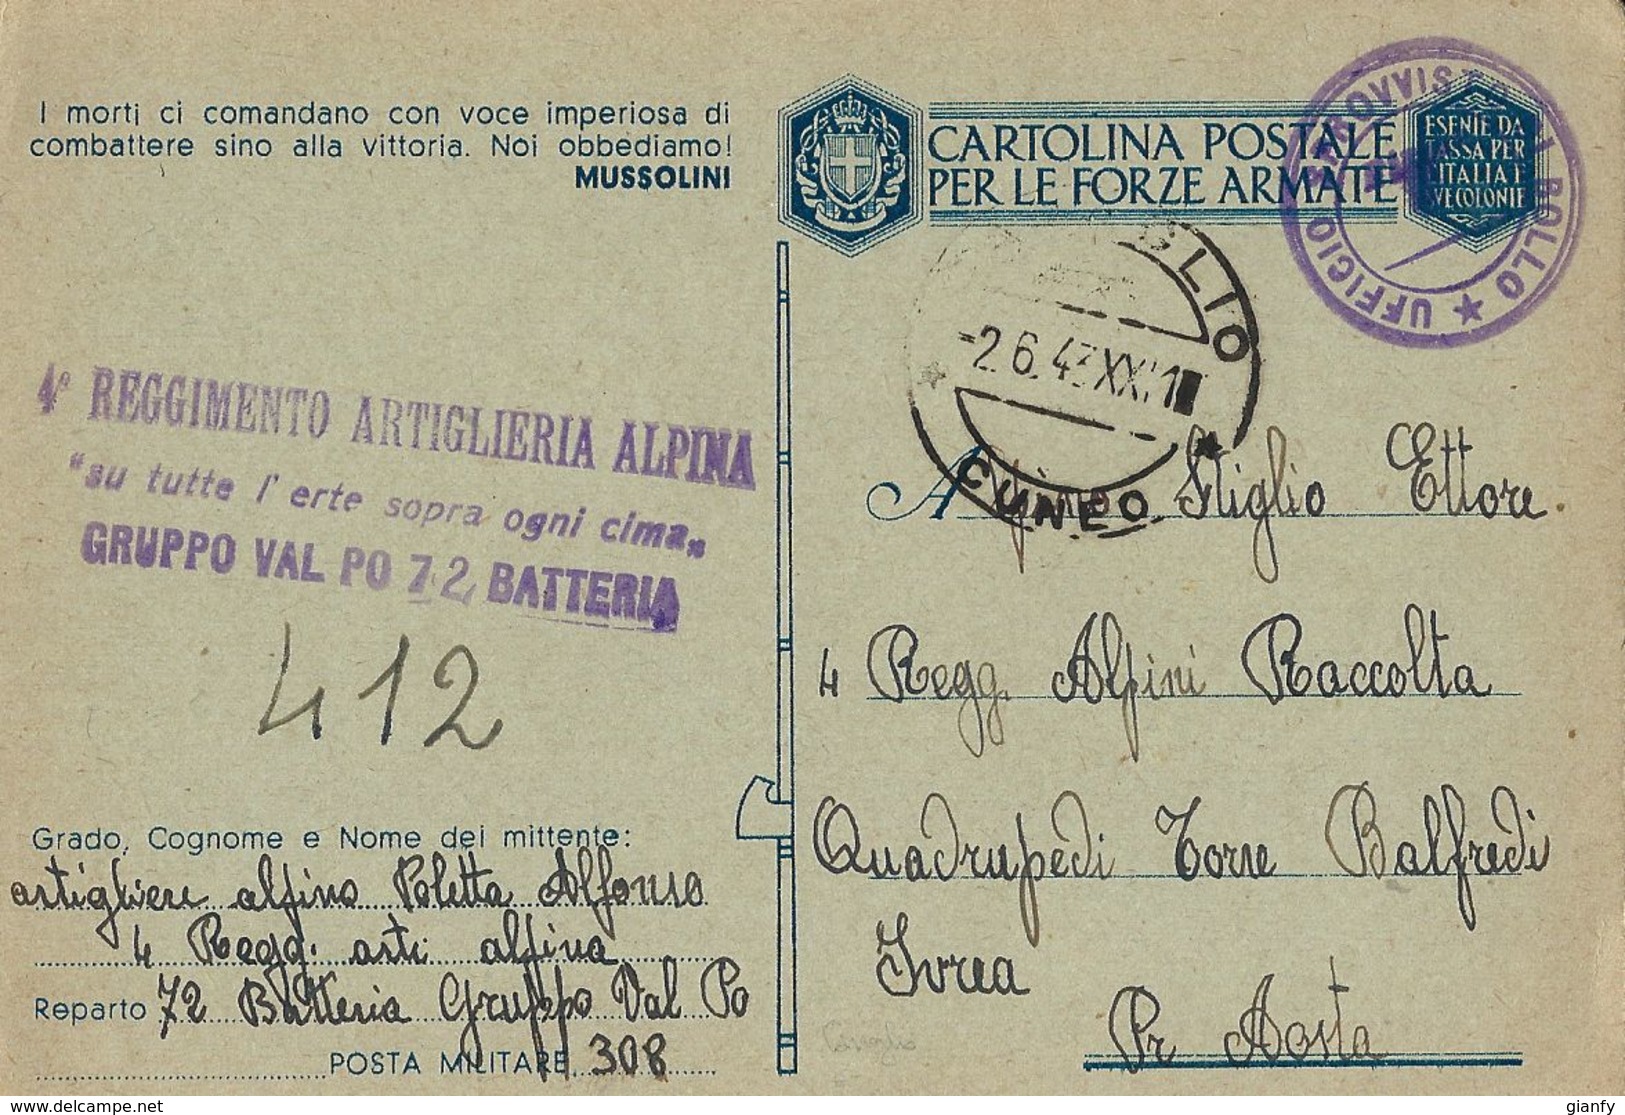 I morti ci comandano con voce imperiosa di
combattere sino alla vittoria. Noi obbediamo!
MUSSOLINI
CARTOLINA POSTALE
PER LE FORZE ARMATE
ESENTE DA
TASSA PER
L'ITALIA E
VECOLONIE
BOLLO ★ UFFICIO
GLIO
-2.6.43.XXI 1
CUNEO
4° REGGIMENTO ARTIGLIERIA ALPINA
"su tutte l'erte sopra ogni cima„
GRUPPO VAL PO 72 BATTERIA
412
A Alpino Stiglio Ettore
4 Regg. Alpini Raccolta
Quadrupedi Torre Balfredi
Ivrea
Pr Aosta
Grado, Cognome e Nome del mittente:
artigliere alpino Poletta Alfonso
4 Regg. arti alpina
Reparto 72 Batteria Gruppo Val Po
POSTA MILITARE 308
delcampe.net
gianfy